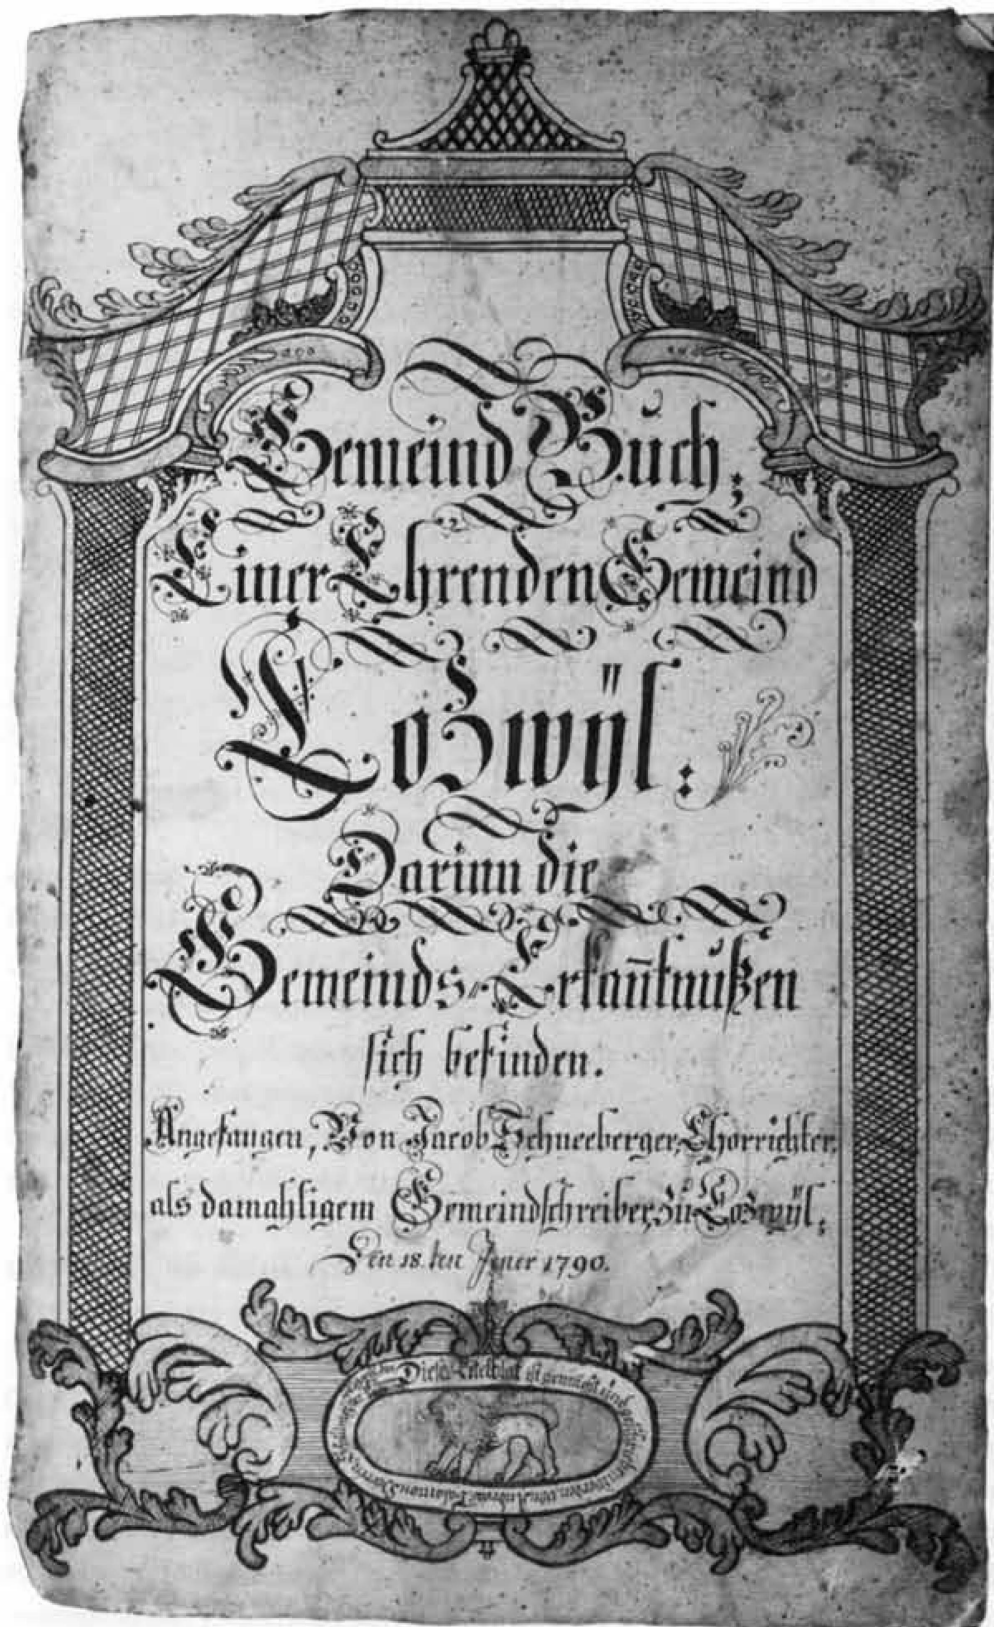 Gemeind Buch;
Einer Ehrenden Gemeind
Lozwÿl:
Darinn die
Gemeinds-Erkan̄tnußen
sich befinden.
Angefangen, Von Jacob Schneeberger, Chorrichter,
als damahligem Gemeindschreiber zu Lozwÿl;
Den 18.ten Jener 1790.
Dieses Titelblat ist gemacht und geschrieben worden von Andreas Salomon